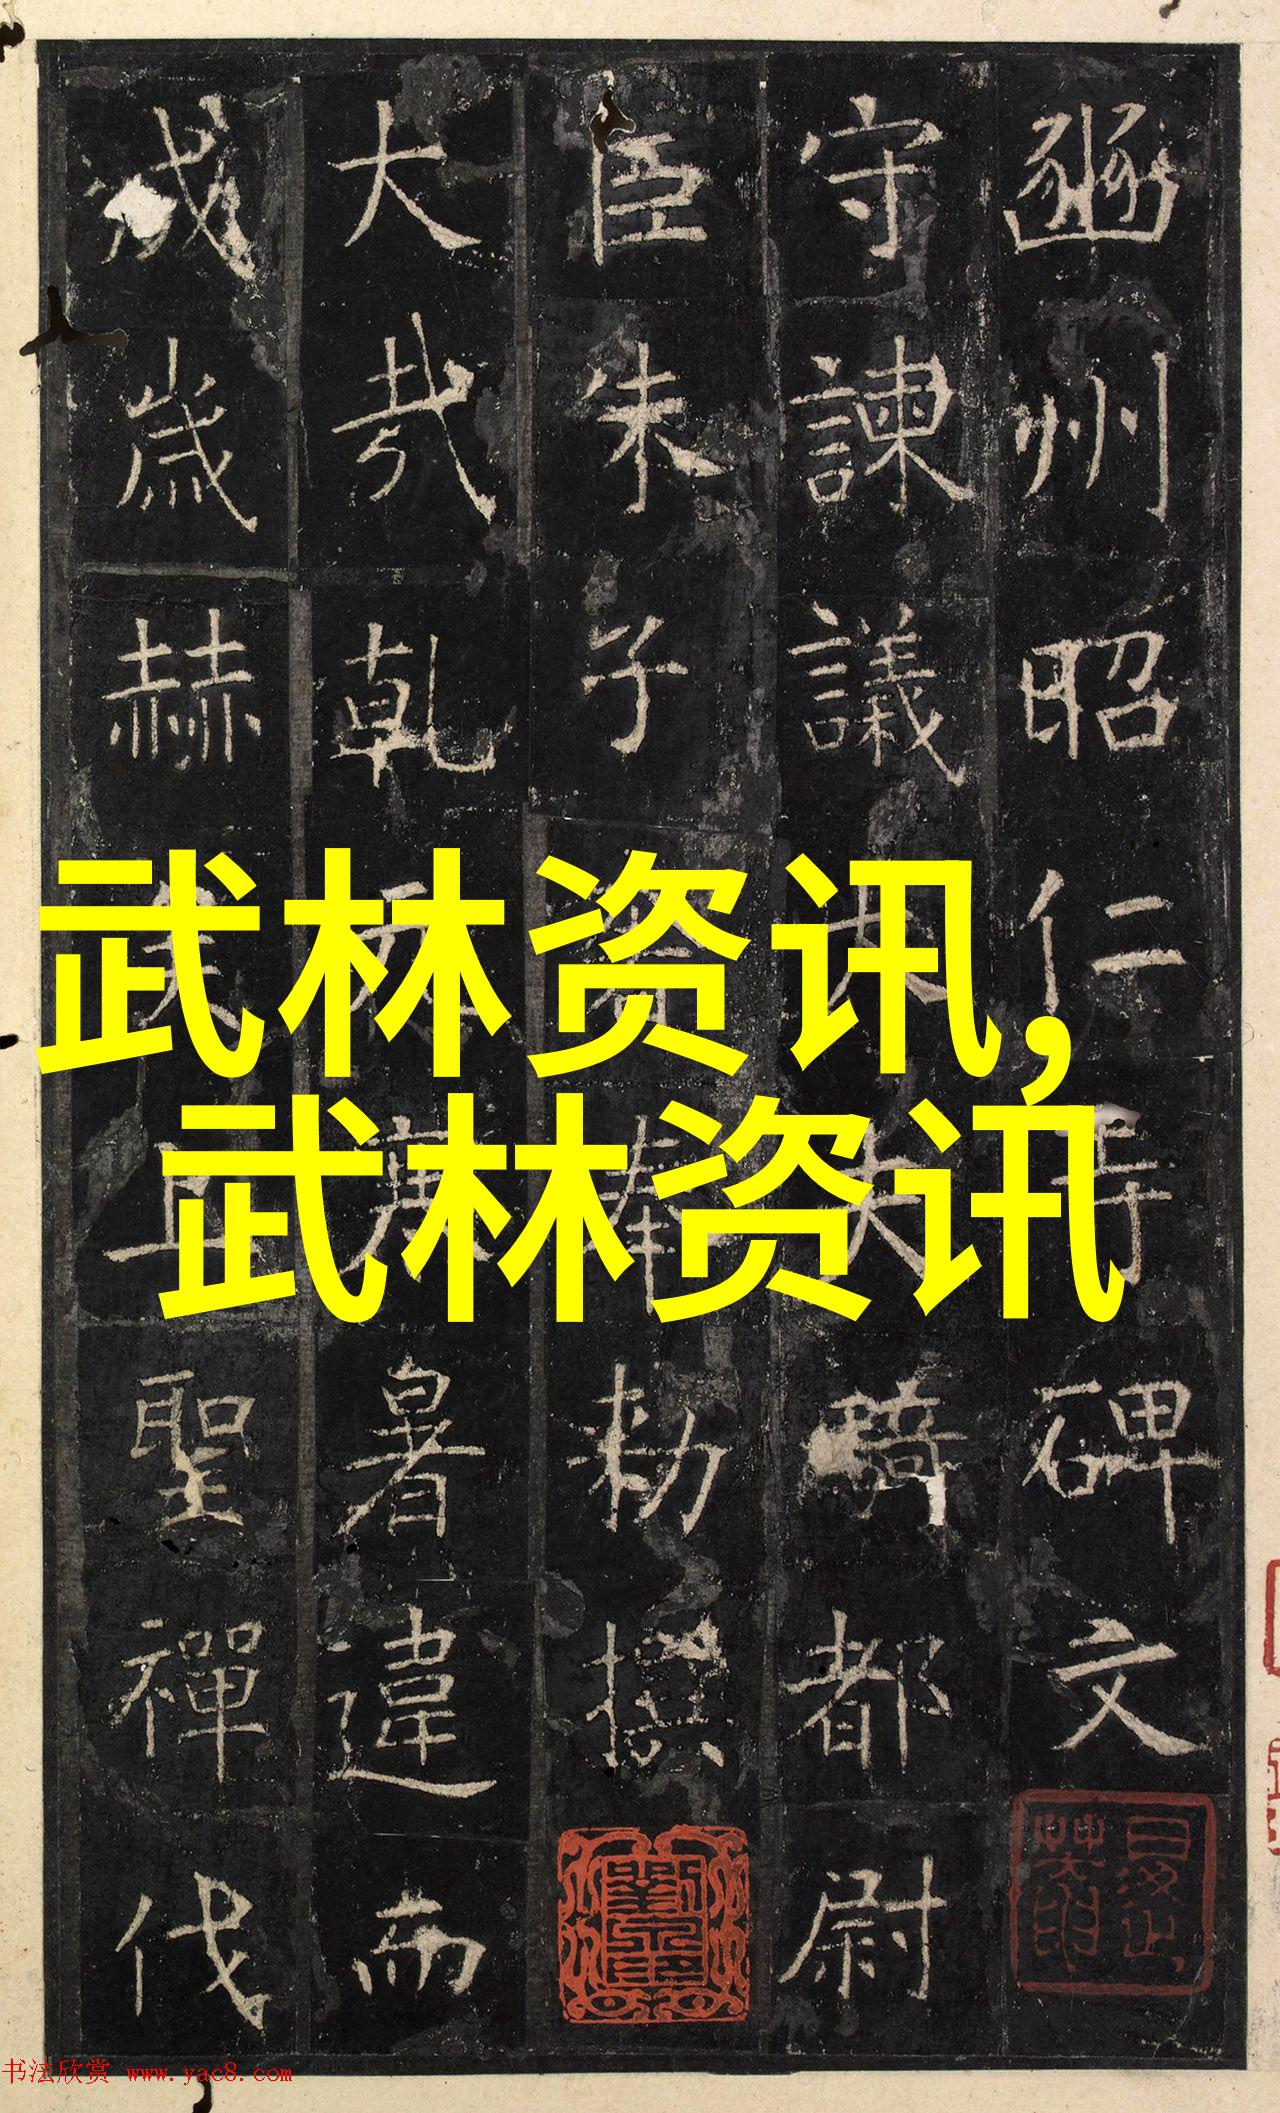 豳州昭仁寺碑文
守諫議大夫騎都尉
臣朱子奢奉勑撰
大哉乾元庚暑違而
成歲赫矣且聖禪代
武林资讯,
武林资讯
书法欣赏 www.yac8.com